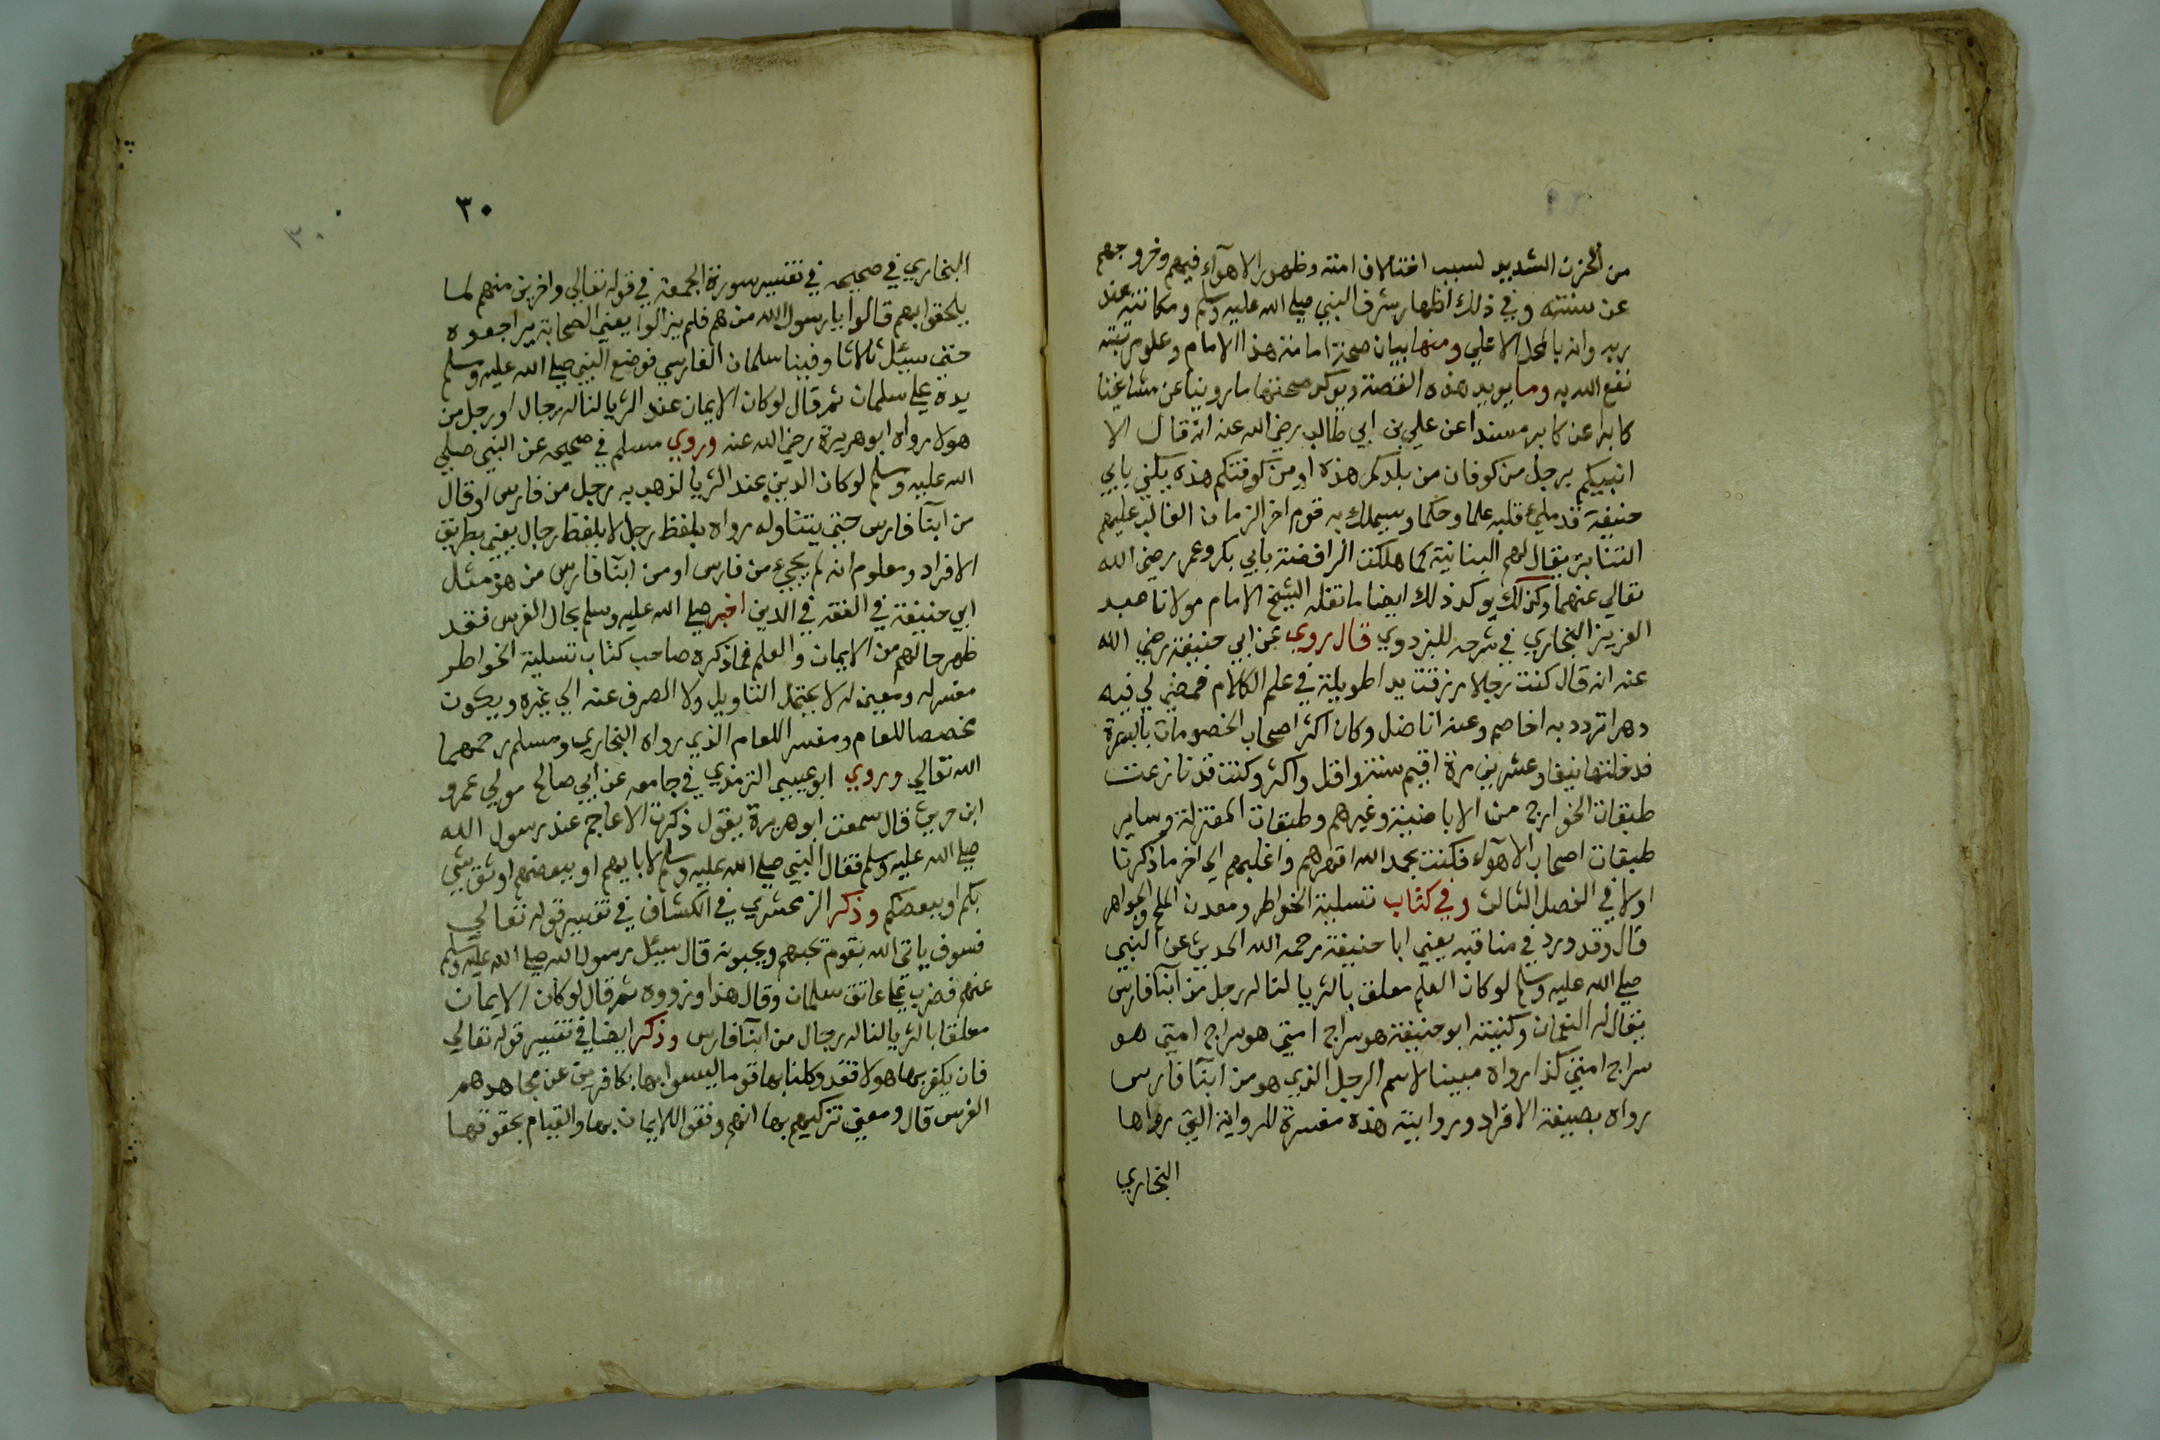 من الحزن الشديد لسبب اختلاف امته وظهور الاهوآء فيهم وخروجهم
عن سنته وفي ذلك اظهار شرف النبي صلي الله عليه وسلم ومكانته عند
ربه وانه بالمحل الاعلي ومنها بيان صحة امامة هذا الامام وعلو مرتبته
نفع الله به ومما يويد هذه القصة ويوكد صحتها ما روينا عن مشايخنا
كابرا عن كابر مسندا عن علي بن ابي طالب رضي الله عنه انه قال الا
انبيكم برجل من كوفان من بلدكم هذه او من كوفتكم هذه يكني بابي
حنيفة قد ملئ قلبه علما وحكما وسيهلك به قوم اخر الزمان الغالب عليهم
التنابز يقال لهم البنانية كما هلكت الرافضة بابي بكر وعمر رضي الله
تعالي عنهما وكذلك يوكد ذلك ايضا ما نقله الشيخ الامام مولانا عبد
العزيز البخاري في شرحه للبزدوي قال روي عن ابي حنيفة رضي الله
عنه انه قال كنت رجلا رزقت يدا طويلة في علم الكلام فمضي لي فيه
دهر اتردد به اخاصم وعنه اناضل وكان اكثر اصحاب الخصومات بالبصرة
فدخلتها نيفا وعشرين مرة اقيم سنة واقل واكثر وكنت قد نازعت
طبقات الخوارج من الاباضية وغيرهم وطبقات المعتزلة وساير
طبقات اصحاب الاهوآء فكنت بحمد الله اقهرهم واغلبهم الي اخر ما ذكرنا
اولا في الفصل الثالث وفي كتاب تسلية الخواطر ومعدن الملح والجواهر
قال وقد ورد في مناقبه يعني ابا حنيفة رحمه الله الحديث عن النبي
صلي الله عليه وسلم لو كان العلم معلق بالثريا لناله رجل من ابنآ فارس
يقال له النعمان وكنيته ابو حنيفة هو سراج امتي هو سراج امتي هو
سراج امتي كذا رواه مبينا لاسم الرجل الذي هو من ابنآ فارس
رواه بصيغة الافراد وروايته هذه مفسرة للرواية التي رواها
البخاري
٣٠
٣٠
البخاري في صحيحه في تفسير سورة الجمعة في قوله تعالي واخرين منهم لما
يلحقوا بهم قالوا يا رسول الله من هم فلم يزالوا يعني الصحابة يراجعوه
حتي سيئل ثلاثا وفينا سلمان الفارسي فوضع النبي صلي الله عليه وسلم
يده علي سلمان ثم قال لو كان الايمان عند الثريا لناله رجال او رجل من
هولا رواه ابو هريرة رضي الله عنه وروي مسلم في صحيحه عن النبي صلي
الله عليه وسلم لو كان الدين عند الثريا لذهب به رجل من فارس او قال
من ابنآ فارس حتي يتناوله رواه بلفظ رجل لا بلفظ رجال يعني بطريق
الافراد ومعلوم انه لم يجيء من فارس او من ابنآ فارس من هو مثل
ابي حنيفة في الفقه في الدين اخبر صلي الله عليه وسلم بحال الفرس فقد
ظهر حالهم من الايمان والعلم فما ذكره صاحب كتاب تسلية الخواطر
مفسر له ومعين له لا يحتمل التاويل ولا الصرف عنه الي غيره ويكون
مخصصا للعام ومفسر اللعام الذي رواه البخاري ومسلم رحمهما
الله تعالي وروي ابو عيسي الترمذي في جامعه عن ابي صالح مولي عمرو
ابن حريث قال سمعت ابو هريرة يقول ذكرت الاعاجم عند رسول الله
صلي الله عليه وسلم فقال النبي صلي الله عليه وسلم لانا بهم او ببعضهم اوثق مني
بكم او ببعضكم وذكر الزمخشري في الكشاف في تفسير قوله تعالي
فسوف ياتي الله بقوم يحبهم ويحبونه قال سيئل رسول الله صلي الله عليه وسلم
عنهم فضرب علي عاتق سلمان وقال هذا وذووه ثم قال لو كان الايمان
معلقا بالثريا لناله رجال من ابنآ فارس وذكر ايضا في تفسير قوله تعالي
فان يكفر بها هولا فقد وكلنا بها قوما ليسوا بها بكافرين عن مجاهد هم
الفرس قال ومعني تزكيهم بها انهم وفقوا للايمان بها والقيام بحقوقها